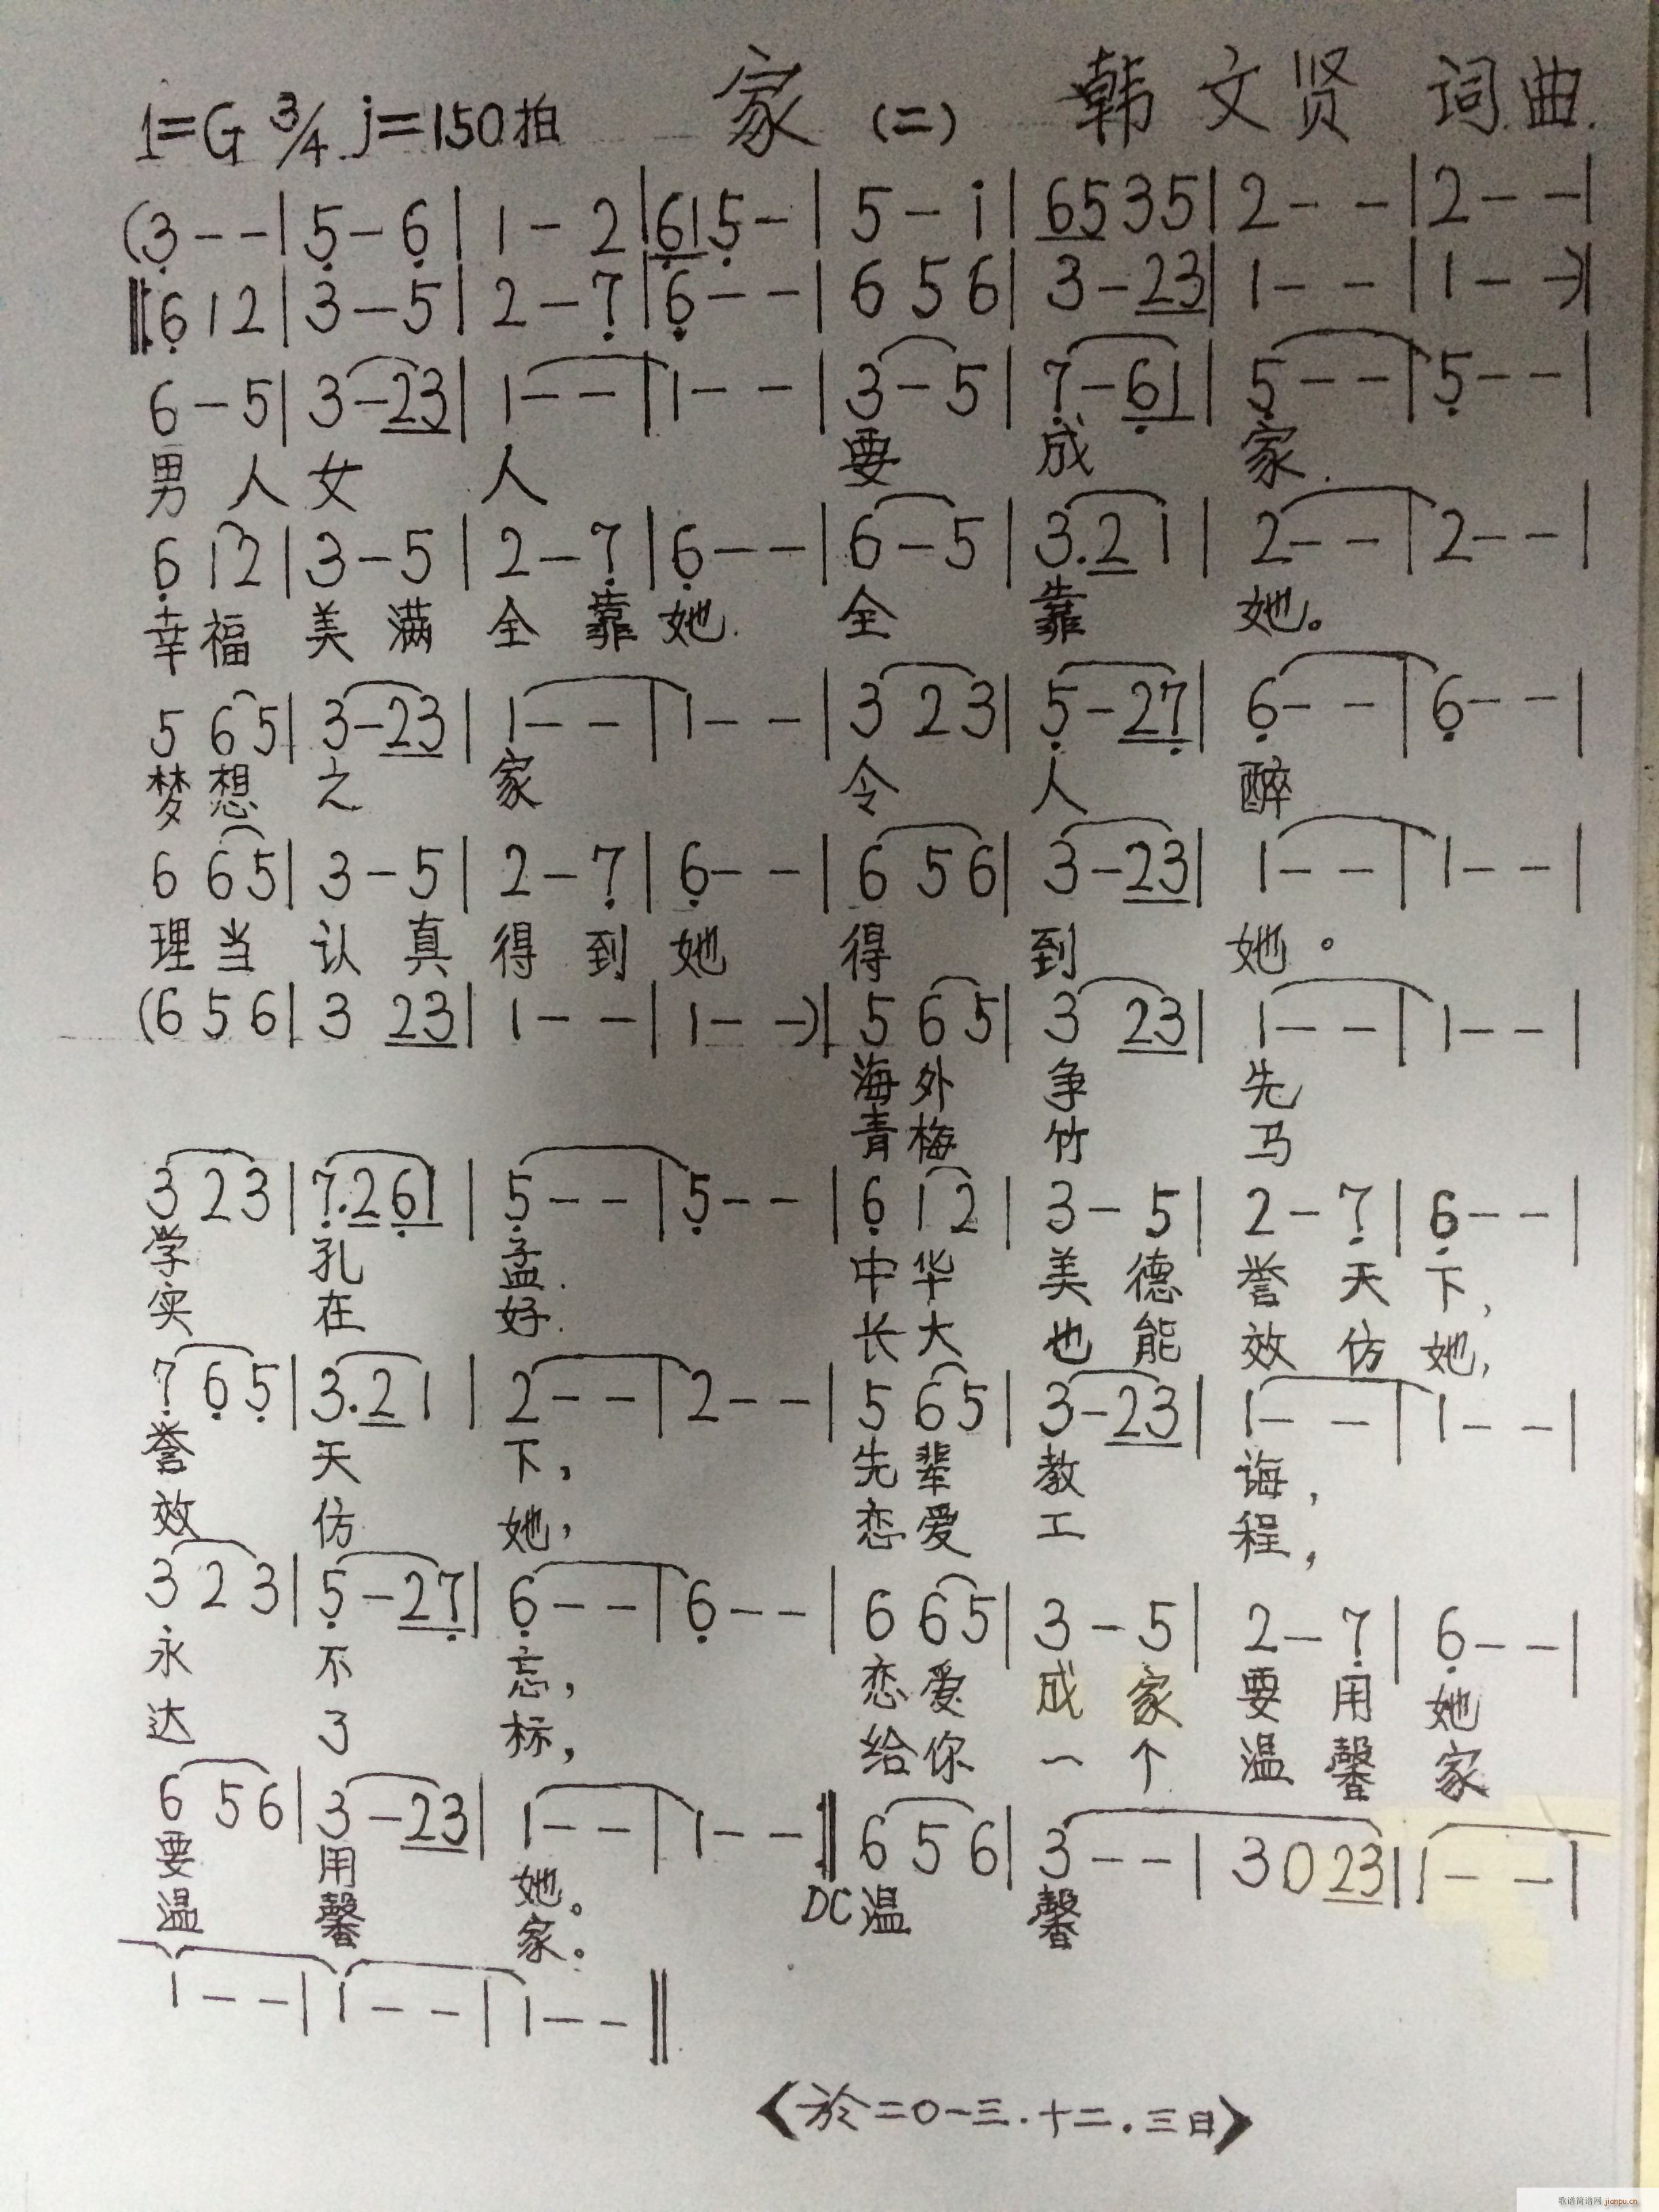 1=G 3/4 j=150拍 家 (二) 韩文贤 词曲.
(3 - - | 5 - 6 | 1 - 2 | 6 1 5 - | 5 - i | 6 5 3 5 | 2 - - | 2 - - |
‖: 6 1 2 | 3 - 5 | 2 - 7 | 6 - - | 6 5 6 | 3 - 2 3 | 1 - - | 1 - -) |
6 - 5 | 3 - 2 3 | 1 - - | 1 - - | 3 - 5 | 7 - 6 1 | 5 - - | 5 - - |
男 人 女 人 要 成 家.
6 1 2 | 3 - 5 | 2 - 7 | 6 - - | 6 - 5 | 3. 2 1 | 2 - - | 2 - - |
幸 福 美 满 全 靠 她. 全 靠 她。
5 6 5 | 3 - 2 3 | 1 - - | 1 - - | 3 2 3 | 5 - 2 7 | 6 - - | 6 - - |
梦 想 之 家 令 人 醉
6 6 5 | 3 - 5 | 2 - 7 | 6 - - | 6 5 6 | 3 - 2 3 | 1 - - | 1 - - |
理 当 认 真 得 到 她 得 到 她。
(6 5 6 | 3 2 3 | 1 - - | 1 - -) | 5 6 5 | 3 2 3 | 1 - - | 1 - - |
海 外 争 先
青 梅 竹 马
3 2 3 | 7. 2 6 1 | 5 - - | 5 - - | 6 1 2 | 3 - 5 | 2 - 7 | 6 - - |
学 孔 孟. 中 华 美 德 誉 天 下,
实 在 好. 长 大 也 能 效 仿 她,
7 6 5 | 3. 2 1 | 2 - - | 2 - - | 5 6 5 | 3 - 2 3 | 1 - - | 1 - - |
誉 天 下, 先 辈 教 诲,
效 仿 她, 恋 爱 工 程,
3 2 3 | 5 - 2 7 | 6 - - | 6 - - | 6 6 5 | 3 - 5 | 2 - 7 | 6 - - |
永 不 忘, 恋 爱 成 家 要 用 她
达 了 标, 给 你 一 个 温 馨 家
6 5 6 | 3 - 2 3 | 1 - - | 1 - - :‖ 6 5 6 | 3 - - | 3 0 2 3 | 1 - - |
要 用 她。 DC 温 馨
温 馨 家。
1 - - | 1 - - | 1 - - ‖
〈於二0一三.十二.三日〉
歌谱简谱网 jianpu.cn